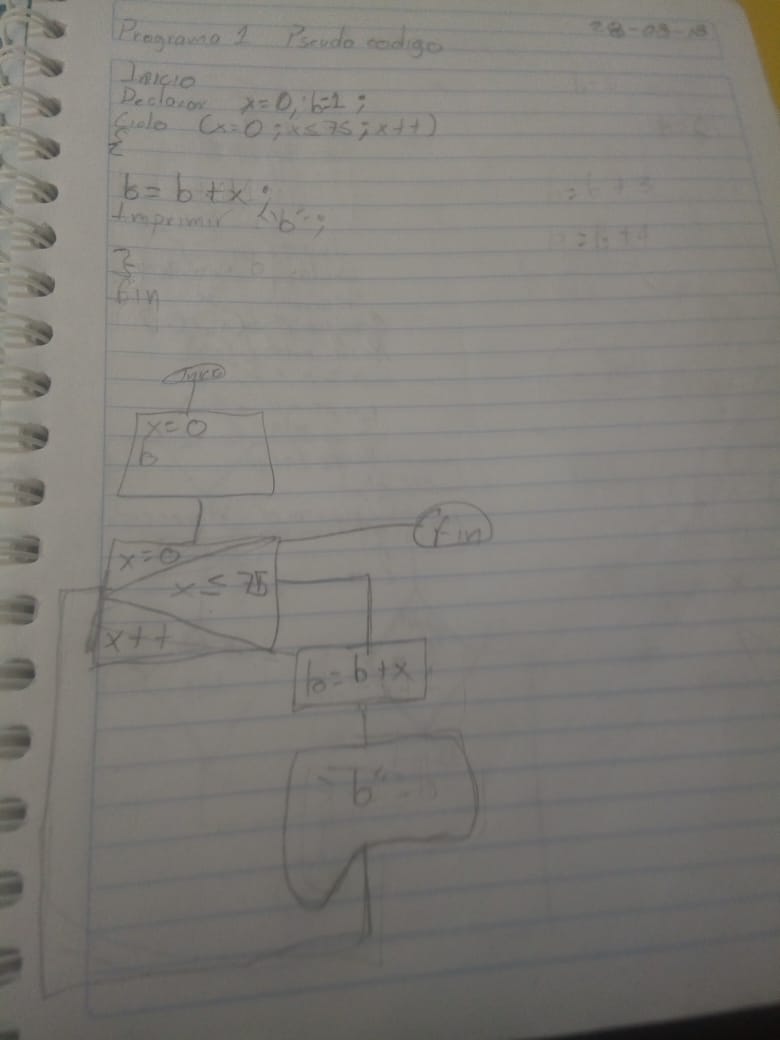 Programa 1 Pseudo codigo
28-09-18
Inicio
Declarar x=0, b=1 ;
Ciclo (x=0 ; x≤75 ; x++)
{
b= b +x ;
Imprimir "b" ;
}
Fin
x=0
b
Fin
x=0
x≤ 75
x++
b= b+x
"b"